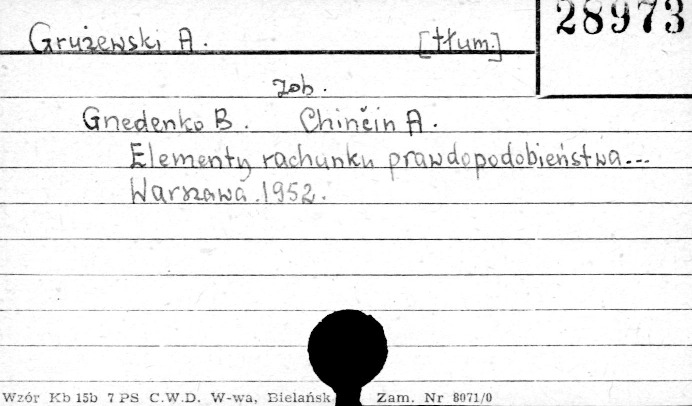 28973
Grużewski A. [tłum.]
zob.
Gnedenko B. Chinčin A.
Elementy rachunku prawdopodobieństwa...
Warszawa 1952.
Wzór Kb 15b 7 PS C.W.D. W-wa, Bielańsk Zam. Nr 8071/0